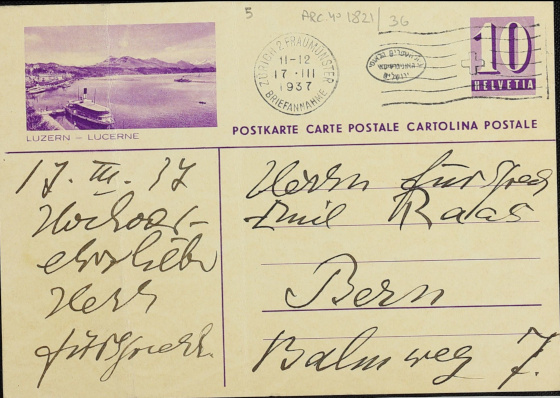 5
ARC. 40 1821/36
ZÜRICH 2 FRAUMÜNSTER
11-12
17·III
1937
BRIEFANNAHME
10
HELVETIA
LUZERN – LUCERNE
POSTKARTE CARTE POSTALE CARTOLINA POSTALE
17. III. 37
Herrn Fürsprech
Emil Raas
Bern
Balmweg 7.
Hochver-
ehrtlieber
Herr
Fürsprech.